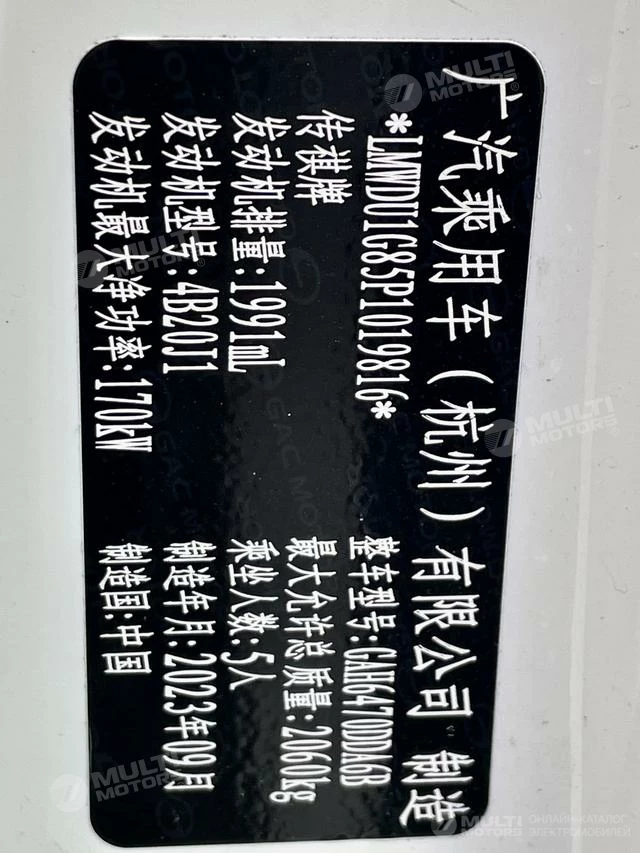 广汽乘用车（杭州）有限公司 制造
*LMWDU1G85P1019816*
传祺牌 整车型号:GAH6470DDA6B
发动机排量:1991mL 最大允许总质量:2060kg
发动机型号:4B20J1 乘坐人数:5人
发动机最大净功率:170kW 制造年月:2023年09月
制造国:中国
MULTI MOTORS
MULTI MOTORS
MULTI MOTORS
MULTI MOTORS
MULTI MOTORS ОНЛАЙН-КАТАЛОГ ЭЛЕКТРОМОБИЛЕЙ
GAC MOTOR